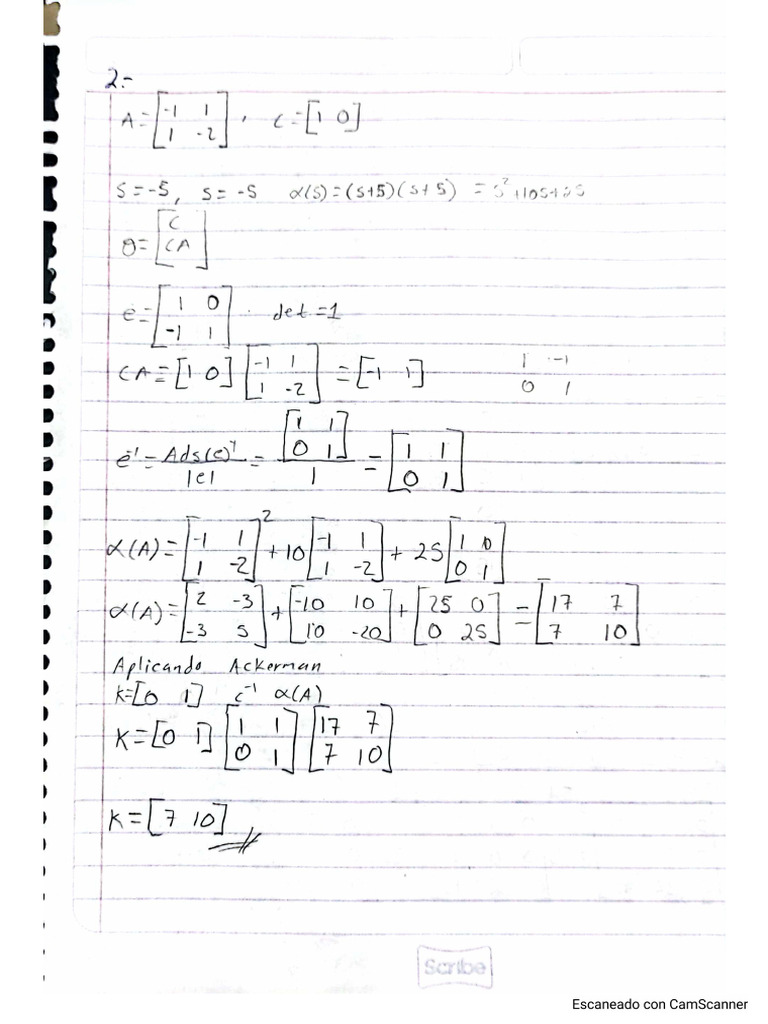 2.-
A = [-1 1; 1 -2] , C = [1 0]
S = -5, S = -5 α(S) = (S+5)(S+5) = S²+10S+25
θ = [C; CA]
e = [1 0; -1 1] . det = 1
CA = [1 0] [-1 1; 1 -2] = [-1 1] 1 -1
0 1
e⁻¹ = Ads(e)ᵗ / |e| = [1 1; 0 1] / 1 = [1 1; 0 1]
α(A) = [-1 1; 1 -2]² + 10 [-1 1; 1 -2] + 25 [1 0; 0 1]
α(A) = [2 -3; -3 5] + [-10 10; 10 -20] + [25 0; 0 25] = [17 7; 7 10]
Aplicando Ackerman
K = [0 1] c⁻¹ α(A)
K = [0 1] [1 1; 0 1] [17 7; 7 10]
K = [7 10]
Scribe
Escaneado con CamScanner